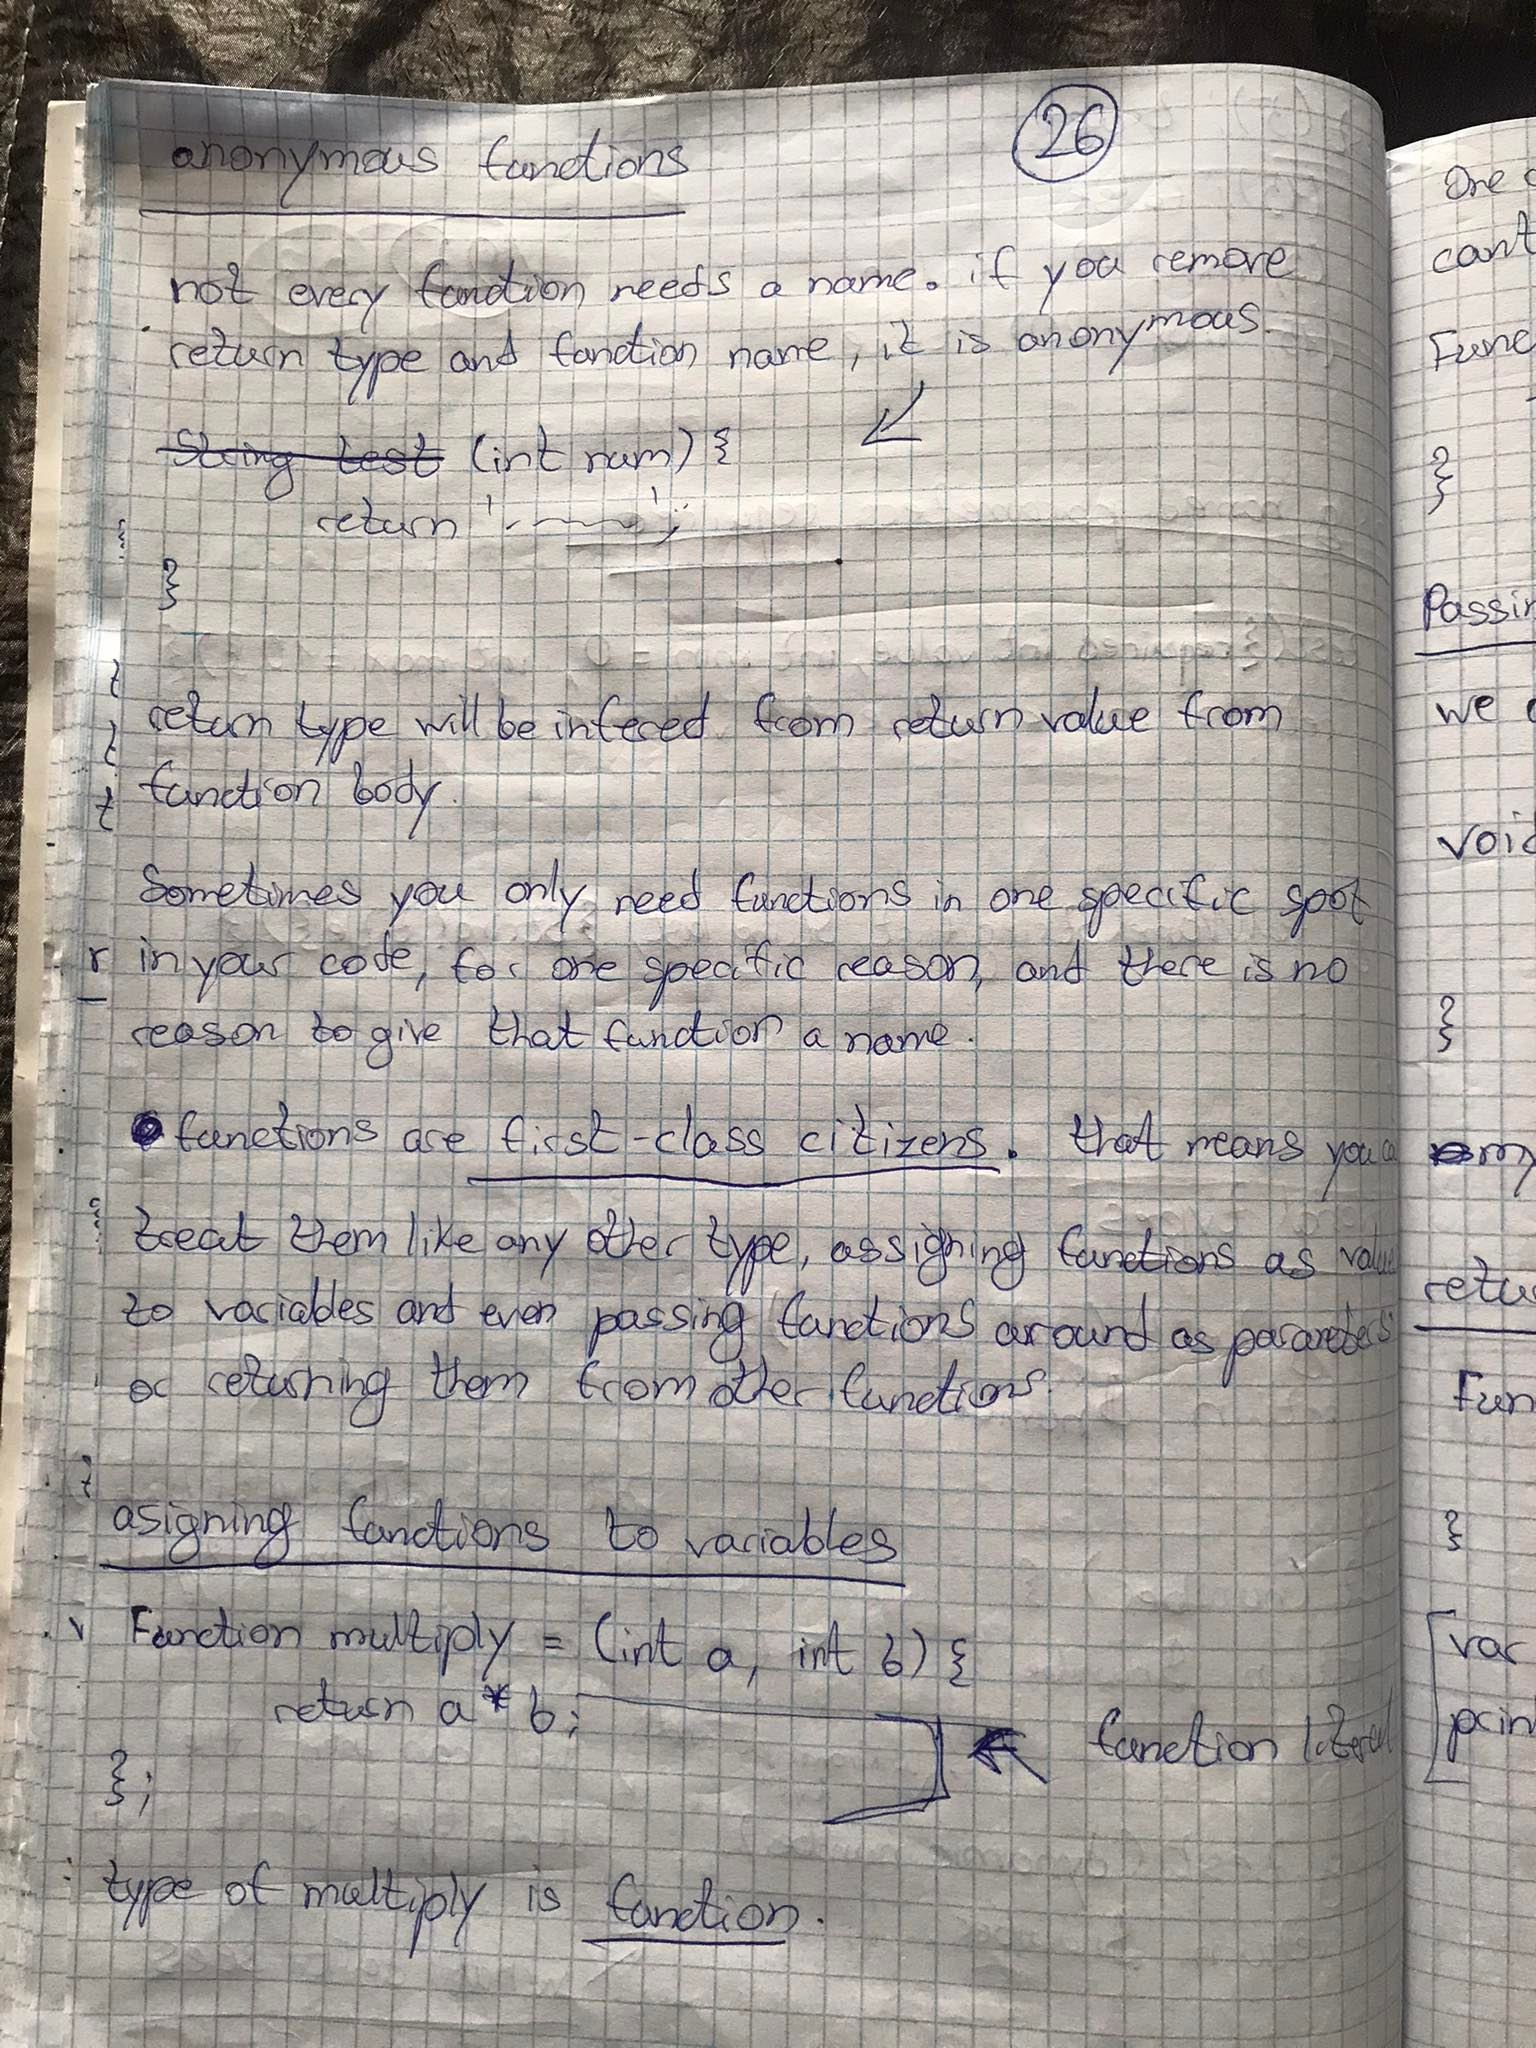 26
anonymous functions
not every function needs a name. if you remove
return type and function name, it is anonymous.
String test (int num) {
return '

';
}
return type will be infered from return value from
function body.
Sometimes you only need functions in one specific spot
in your code, for one specific reason, and there is no
reason to give that function a name.
functions are first-class citizens. that means you ca
treat them like any other type, assigning functions as value
to variables and even passing functions around as parameters
or returning them from other functions.
asigning functions to variables
Function multiply = (int a, int b) {
return a * b;
};
function literal
type of multiply is function.
One
can't
Func
}
Passin
we
void
}
my
retu
Fun
}
var
prin